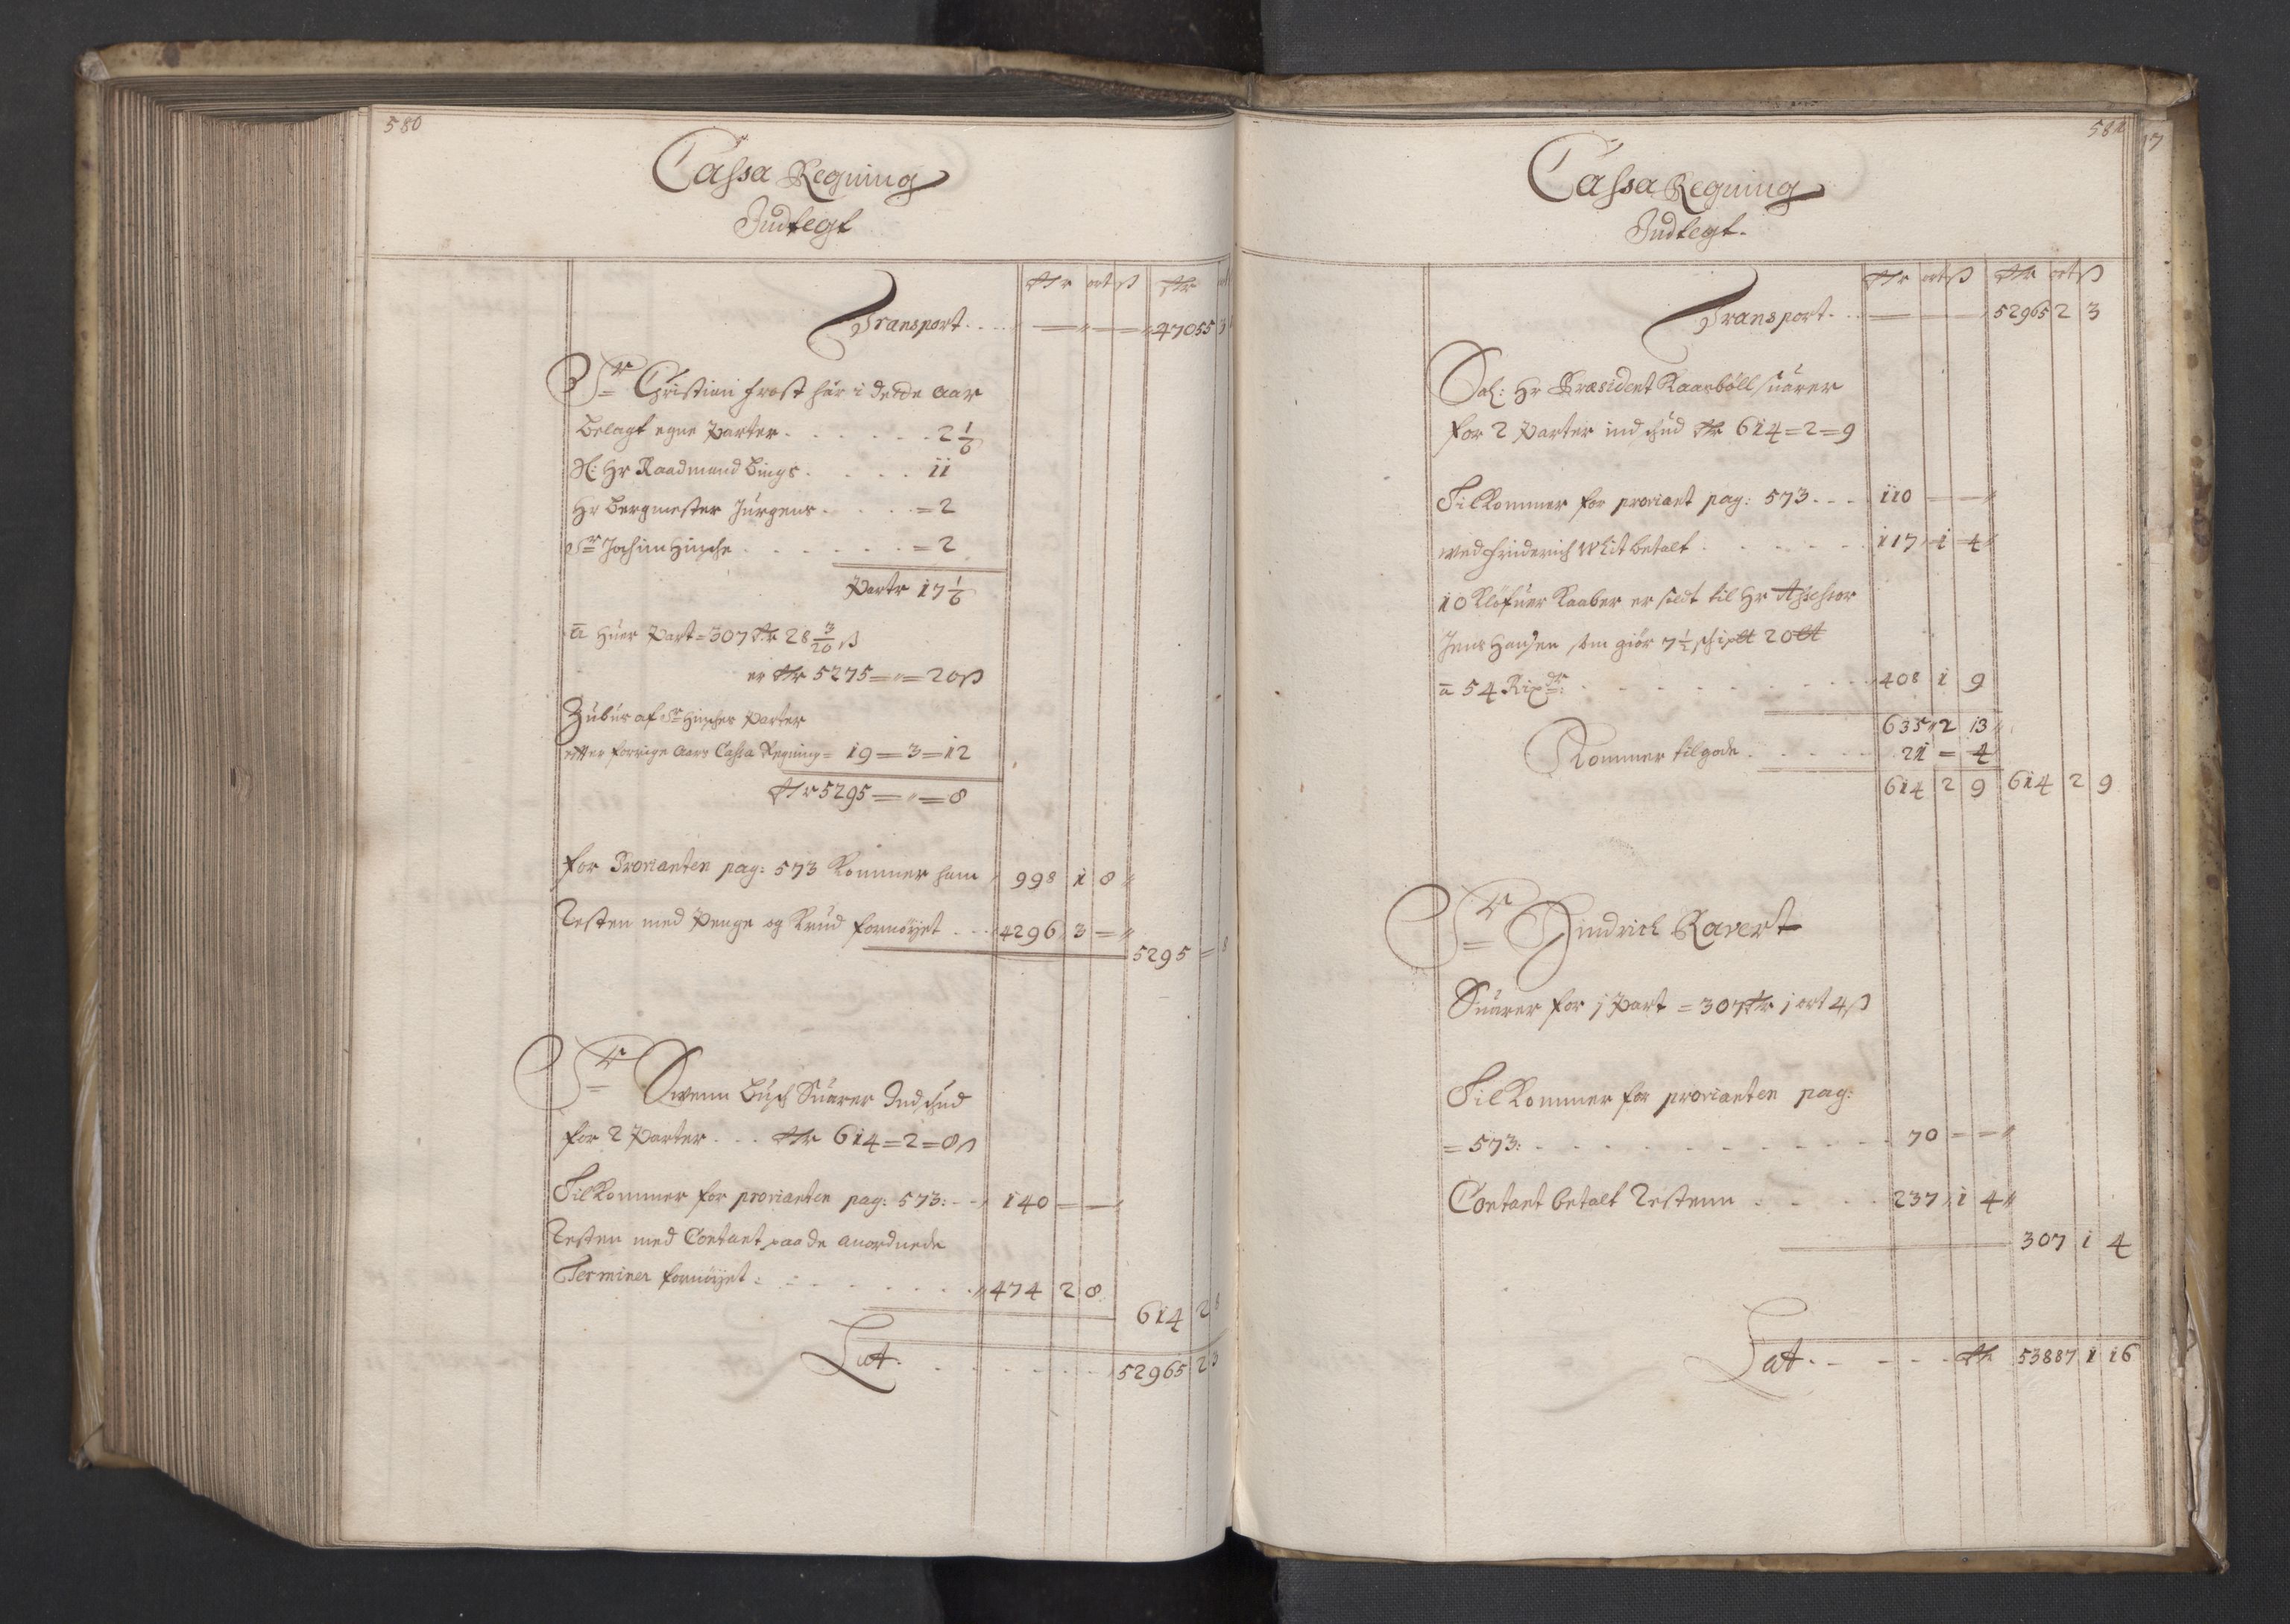 580
Cassa Regning
Indtegt
Rdr ort ß Rdr ort
Transport.... 47055 3
Sr Christian Frost har i dette aar
belagt egne Parter....... 2 1/6
Sl: Hr Raadmand Bings..... 11
Hr Bergmester Jürgens..... = 2
Sr Jochim Hinsche....... = 2
Partr 17 1/6
a Huer Part = 307 Rdr 28 3/20 ß
er Rdr 5275 = " = 20 ß
Zubus af Sr Hinsches Parter
efter forrige Aars Cassa Regning = 19 = 3 = 12
Rdr 5295 = " = 8
for Provianten pag: 573 Kommer ham 998 1 8
Resten med Penge og Krud fornøyet... 4296 3 =
5295 = 8
Sr Swenn Busch Suarer Indschud
for 2 Parter... Rdr 614 = 2 = 8 ß
Tilkommer for provianten pag: 573: 140
Resten med Contant paa de anordnede
Terminer fornøyet: 474 2 8
614 2 8
Lat. 52965 2 3
581
17
Cassa Regning
Indtegt.
Rdr ort ß Rdr ort ß
Transport. 52965 2 3
Sal: Hr Præsident Kaasbøll suarer
for 2 Parter indschud Rdr 614 = 2 = 9
Tilkommer for proviant pag: 573... 110
wed Friderich Whit betalt 117 1 4
10 Kløfuer Kaaber er soldt til Hr Assessor
Jens Hansen som giør 7 1/2 schip℔ 20 ℔
a 54 Rixdr: 408 1 9
635 2 13
Kommer tilgode. 21 = 4
614 2 9 614 2 9
Sr Hindrich Ravert
Suarer for j Part = 307 Rdr j ort 4 ß
Tilkommer for provianten pag:
= 573: 70 = =
Contant betalt Restenn 237 1 4
307 1 4
Lat. Rdr 53887 1 16